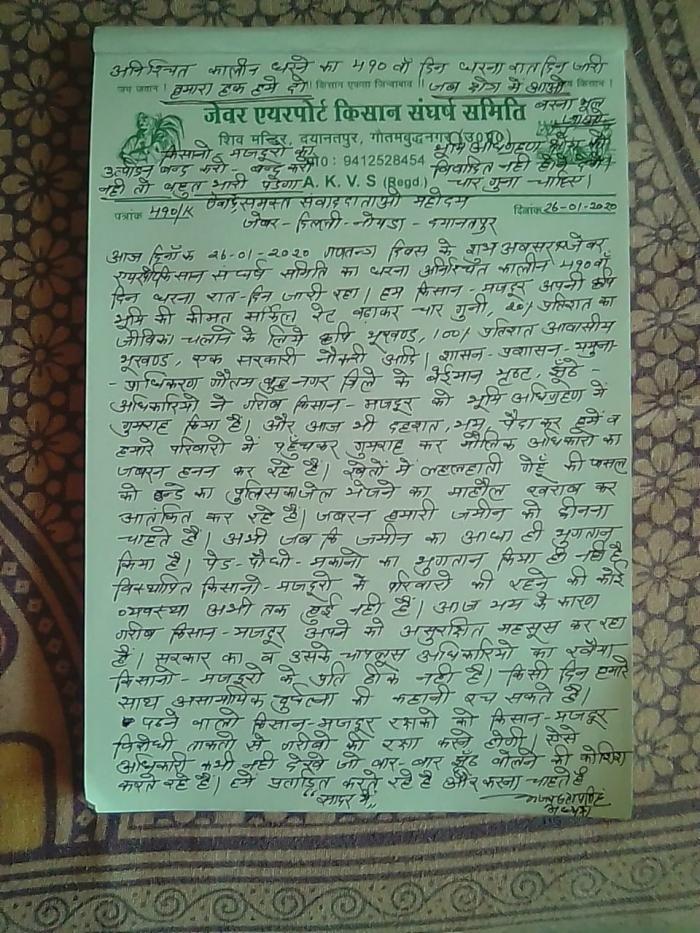 अनिश्चित कालीन धरने का 490 वाँ दिन धरना रात दिन जारी
जय जवान ! हमारा हक हमे दो ! किसान एकता जिन्दाबाद ! जब होश में आओ जय किसान !
जेवर एयरपोर्ट किसान संघर्ष समिति
शिव मन्दिर, दयानतपुर, गौतमबुद्धनगर (उ०प्र०)
किसानो मजदूरों का
उत्पीड़न बन्द करो - बन्द करो मो0 : 9412528454 विवादित नही
नही तो बहुत भारी पड़ेगा A. K. V. S (Regd.) चार गुना चाहिए।
समस्त संवाददाताओ महोदय
पत्रांक 490/K दिनांक 26-01-2020
जेवर - दिल्ली - नोयडा - दयानतपुर
आज दिनाँक 26-01-2020 गणतन्त्र दिवस के शुभ अवसर पर जेवर
एयरपोर्ट किसान संघर्ष समिति का धरना अनिश्चित कालीन 490वाँ
दिन धरना रात-दिन जारी रहा। हम किसान-मजदूर अपनी कृषि
भूमि की कीमत सर्किल रेट बढाकर चार गुनी, 20% प्रतिशत का
जीविका चलाने के लिये कृषि भूखण्ड, 100% प्रतिशत आवासीय
भूखण्ड, एक सरकारी नौकरी आदि। शासन-प्रशासन-यमुना-
-प्राधिकरण गौतम बुद्ध नगर जिले के बेईमान भृष्ट, झूठे-
अधिकारियो ने गरीब किसान-मजदूर को भूमि अधिग्रहण में
गुमराह किया है। और आज भी दहशत, भय, पैदा कर हमें व
हमारे परिवारो में पहुँचकर गुमराह कर मौलिक अधिकारो का
जबरन हनन कर रहे है। खेतों में लहलहाती गेहूँ की फसल
को डन्डे का पुलिस का जेल भेजने का माहौल खराब कर
आतंकित कर रहे है। जबरन हमारी जमीन को छीनना
चाहते है। अभी जब कि जमीन का आधा ही भुगतान
किया है। पेड-पौधो-मकानो का भुगतान किया ही नही है
विस्थापित किसानो-मजदूरो के परिवारो की रहने की कोई
व्यवस्था अभी तक हुई नही है। आज भय के कारण
गरीब किसान-मजदूर अपने को असुरक्षित महसूस कर रहा
है। सरकार का व उसके चापलूस अधिकारियो का रवैया
किसानो-मजदूरो के प्रति ठीक नही है। किसी दिन हमारे
साथ असामायिक दुर्घटना की कहानी रच सकते है।
पढने वालो किसान-मजदूर रक्षको को किसान-मजदूर
विरोधी ताकतो से गरीबो की रक्षा करनी होगी। ऐसे
अधिकारी कभी नही देखे जो बार-बार झूँठ बोलने की कोशिश
करते रहे है। हमें प्रताड़ित करते रहे है और करना चाहते है
सादर में,,
अध्यक्ष